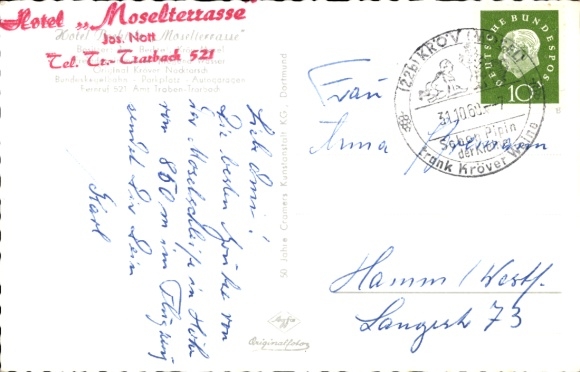 Hotel „Moselterrasse
Jos. Nott
Tel. Tr.-Trarbach 521
Moselterrasse"
Original Kröver Nacktarsch
Bundeskegelbahn - Parkplatz - Autogaragen
Fernruf 521 Amt Traben-Trarbach
50 Jahre Cramers Kunstanstalt KG. Dortmund
Die besten Grüße von
der Moselschleife in Höhe
von 850 m im Flugzeug
sendet Dir Dein
Karl
Agfa
Originalfoto
(22b) KRÖV
31.10.60
Schon Pipin
der Kleine
trank Kröver Weine
DEUTSCHE BUNDESPOST
10
Frau
Anna
Hamm/Westf.
Langestr. 73